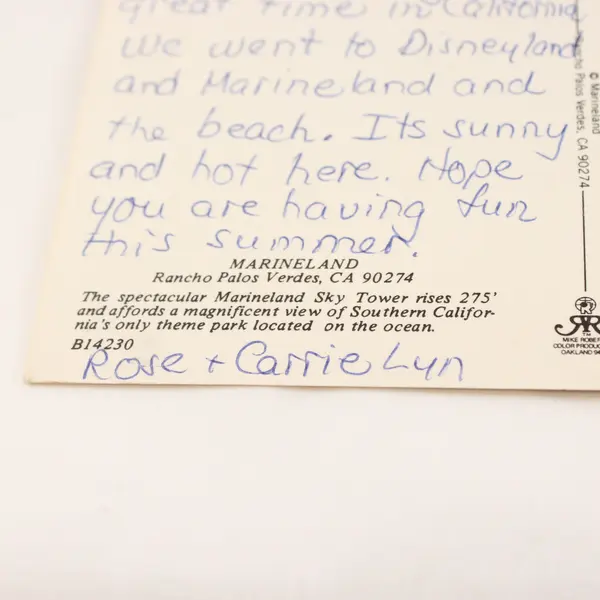 great time in California
We went to Disneyland
and Marineland and
the beach. Its sunny
and hot here. Hope
you are having fun
this summer.
MARINELAND
Rancho Palos Verdes, CA 90274
The spectacular Marineland Sky Tower rises 275'
and affords a magnificent view of Southern Califor-
nia's only theme park located on the ocean.
B14230
Rose + Carrie Lyn
© Marineland
Rancho Palos Verdes, CA 90274
TM
MIKE ROBER
COLOR PRODUC
OAKLAND 94